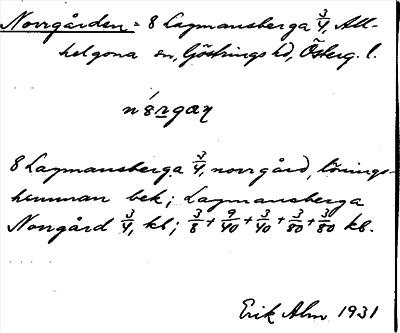 Norrgården = 8 Lagmansberga 3/4, All-
helgona sn, Göstrings hd, Österg. l.
8 Lagmansberga 3/4, norrgård, lönings-
hemman bek; Lagmansberga
Norrgård 3/4, kl; 3/8 + 9/40 + 3/40 + 3/80 + 3/80 kl.
Erik Alm 1931